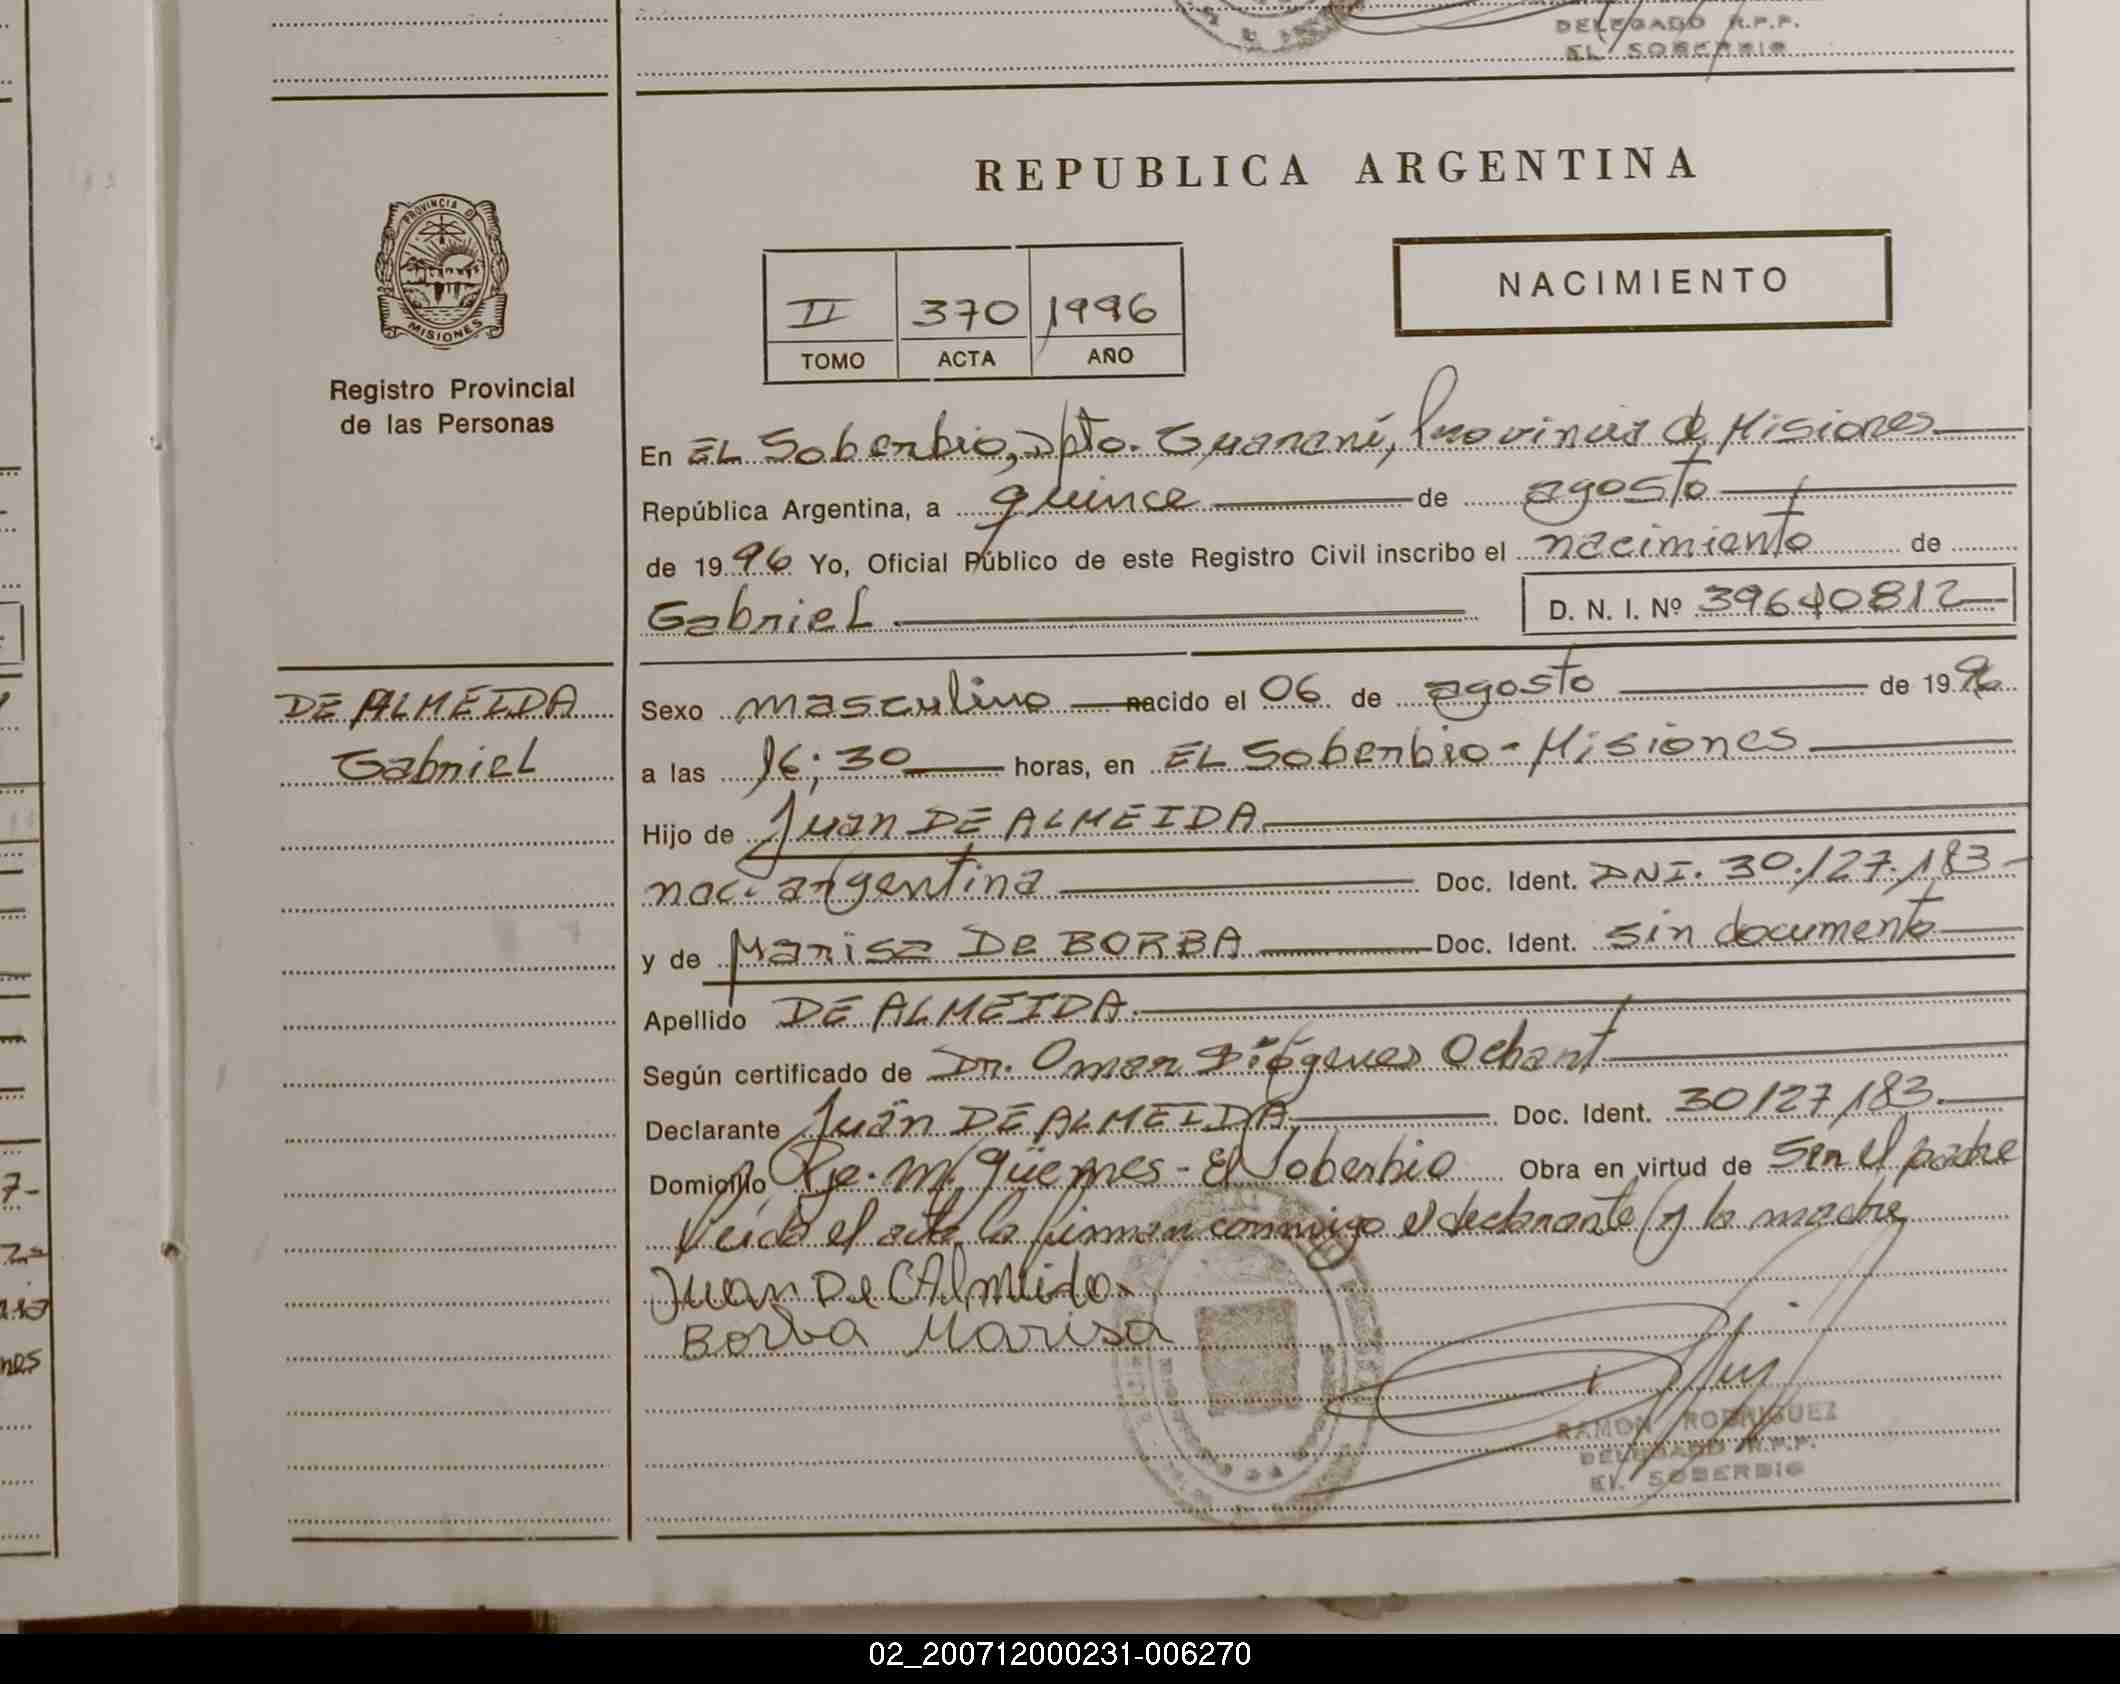 DELEGADO R.P.P.
EL SOBERBIO
REPUBLICA ARGENTINA
PROVINCIA D
MISIONES
Registro Provincial
de las Personas
NACIMIENTO
II 370 1996
TOMO ACTA AÑO
En EL Soberbio, Dpto. Guaraní, Provincia de Misiones
República Argentina, a quince de agosto
de 1996 Yo, Oficial Público de este Registro Civil inscribo el nacimiento de
Gabriel D. N. I. Nº 39640812
DE ALMEIDA
Gabriel
Sexo masculino nacido el 06 de agosto de 1996
a las 16:30 horas, en EL Soberbio - Misiones
Hijo de Juan DE ALMEIDA
nac. argentina Doc. Ident. DNI. 30.127.183
y de Marisa DE BORBA Doc. Ident. sin documento
Apellido DE ALMEIDA
Según certificado de Dr. Omar Diógenes Ochant
Declarante Juan DE ALMEIDA Doc. Ident. 30127183
Domicilio Pje. M. Güemes - El Soberbio Obra en virtud de Ser el padre
Leída el acta la firman conmigo el declarante y la madre
Juan De Almeida
Borba Marisa
RAMON RODRIGUEZ
DELEGADO R.P.P.
EL SOBERBIO
02_200712000231-006270